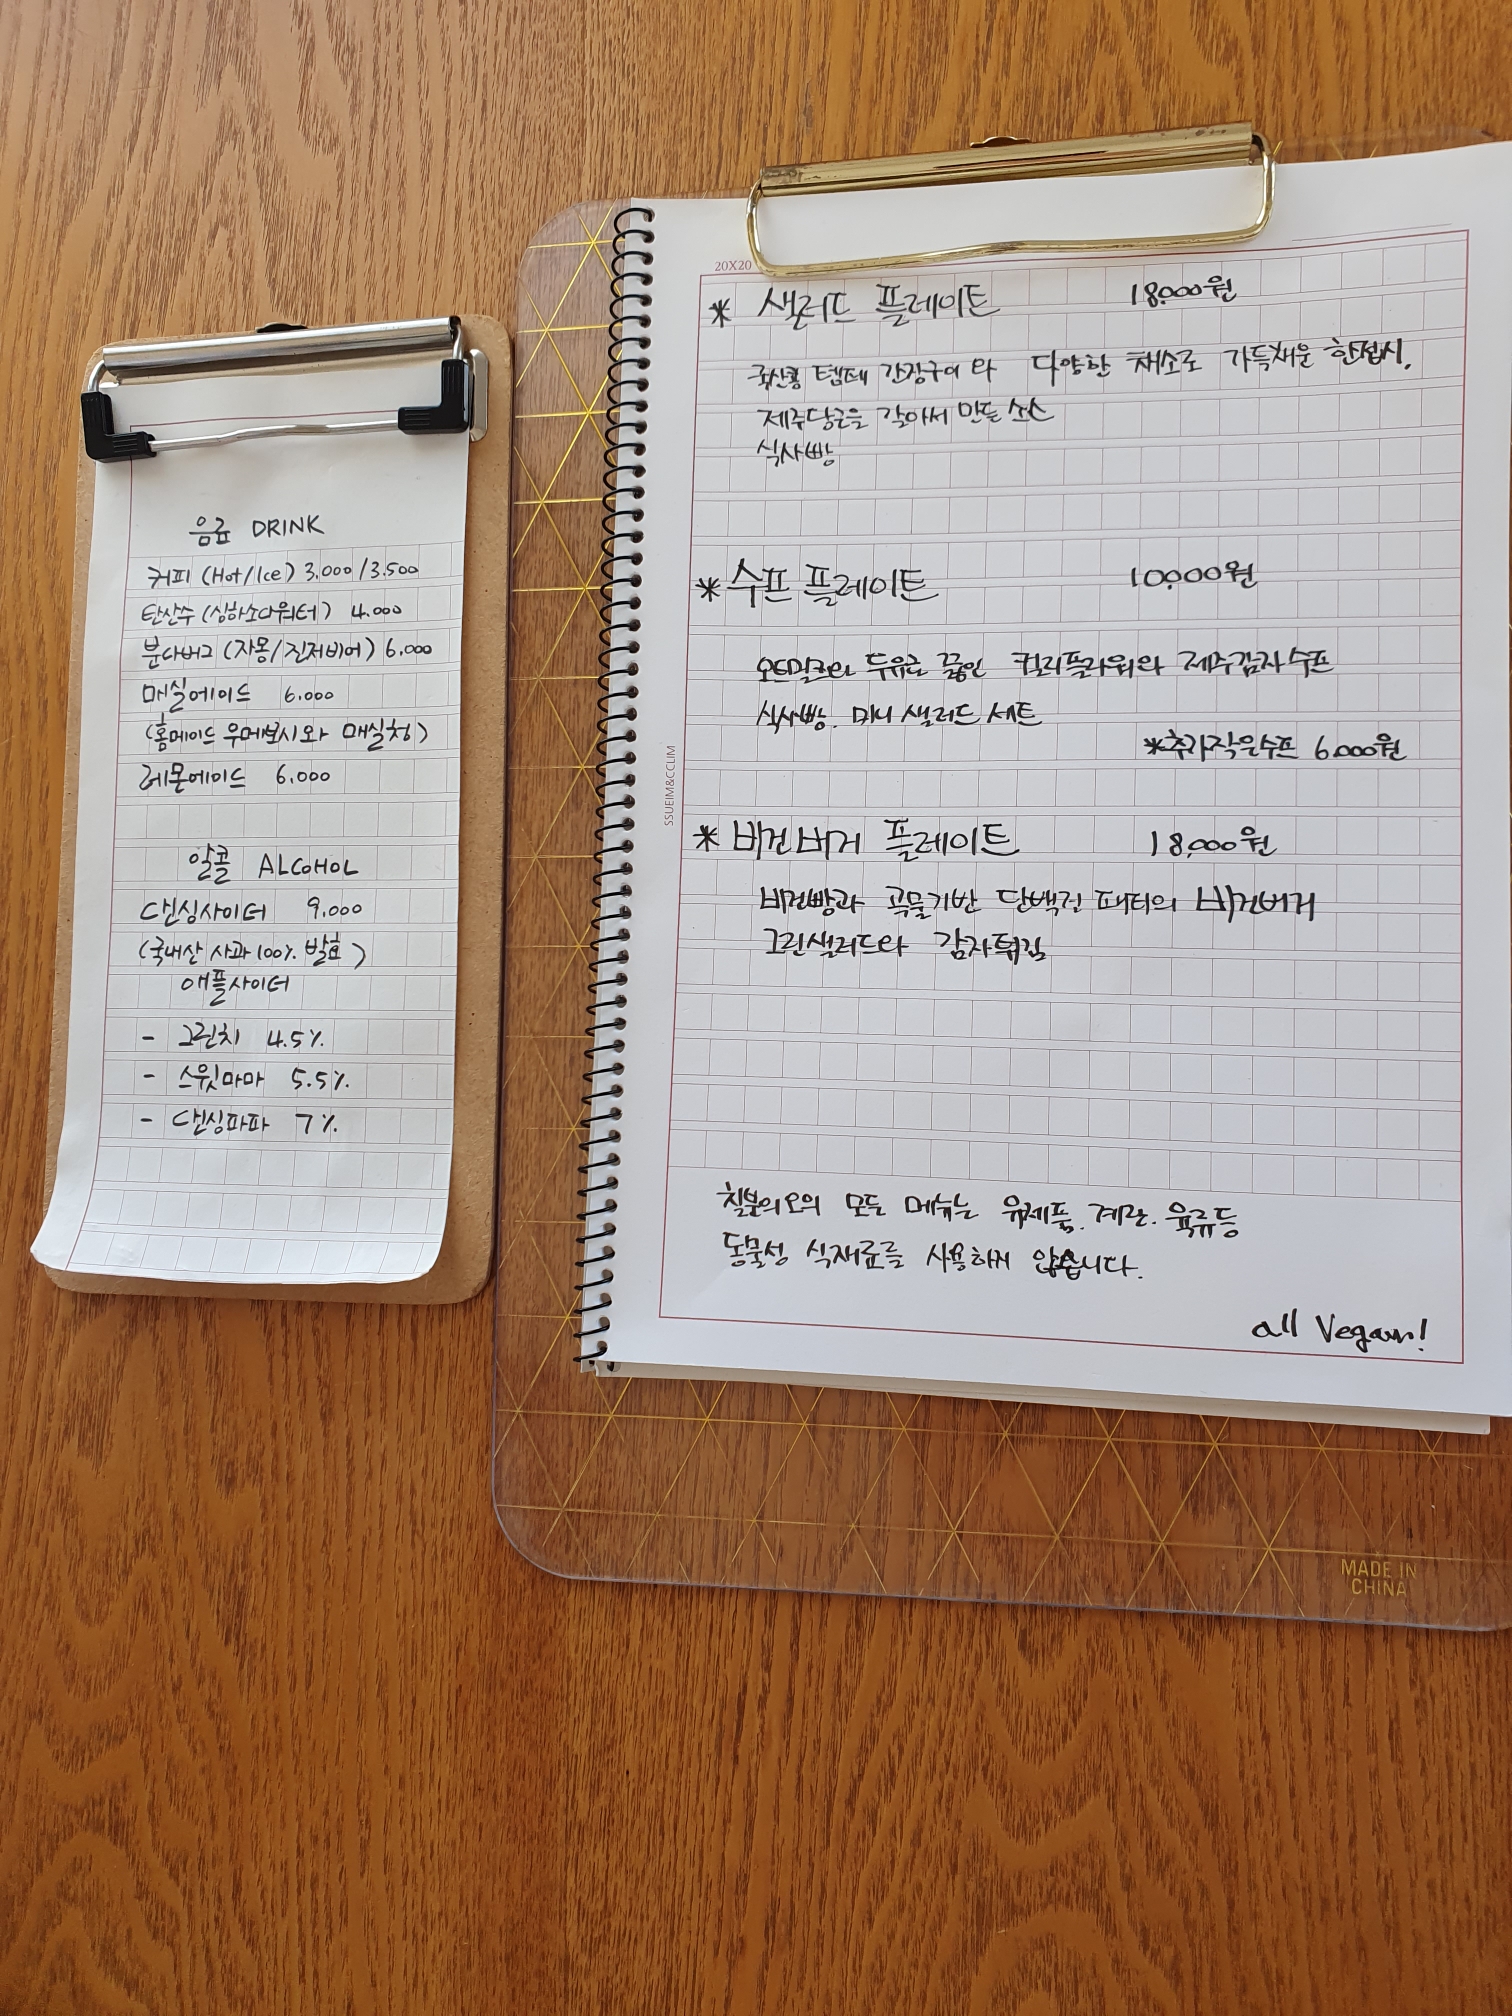 음료 DRINK
커피 (Hot/Ice) 3.000/3.500
탄산수 (심하소다워터) 4.000
분다버그 (자몽/진저비어) 6.000
매실에이드 6.000
(홈메이드 우메보시와 매실청)
레몬에이드 6.000
알콜 ALCOHOL
댄싱사이더 9.000
(국내산 사과 100% 발효)
애플사이더
- 그린치 4.5%
- 스윗마마 5.5%
- 댄싱파파 7%
20X20
* 샐러드 플레이트 18.000원
국산콩 템페 간장구이와 다양한 채소로 가득채운 한접시.
제주당근을 갈아서 만든 소스
식사빵
* 수프 플레이트 10.000원
오트밀크와 두유로 끓인 컬리플라워와 제주감자 수프
식사빵. 미니 샐러드 세트
*추가작은수프 6.000원
* 비건버거 플레이트 18.000원
비건빵과 곡물기반 단백질 패티의 비건버거
그린샐러드와 감자튀김
칠분의오의 모든 메뉴는 유제품. 계란. 육류등
동물성 식재료를 사용하지 않습니다.
all Vegan!
SSUEIM&CCLIM
MADE IN
CHINA